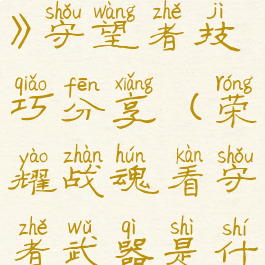 shǒu wàng zhě jì
》守望者技
qiǎo fēn xiǎng róng
巧分享（荣
yào zhàn hún kàn shǒu
耀战魂看守
zhě wǔ qì shì shí
者武器是什